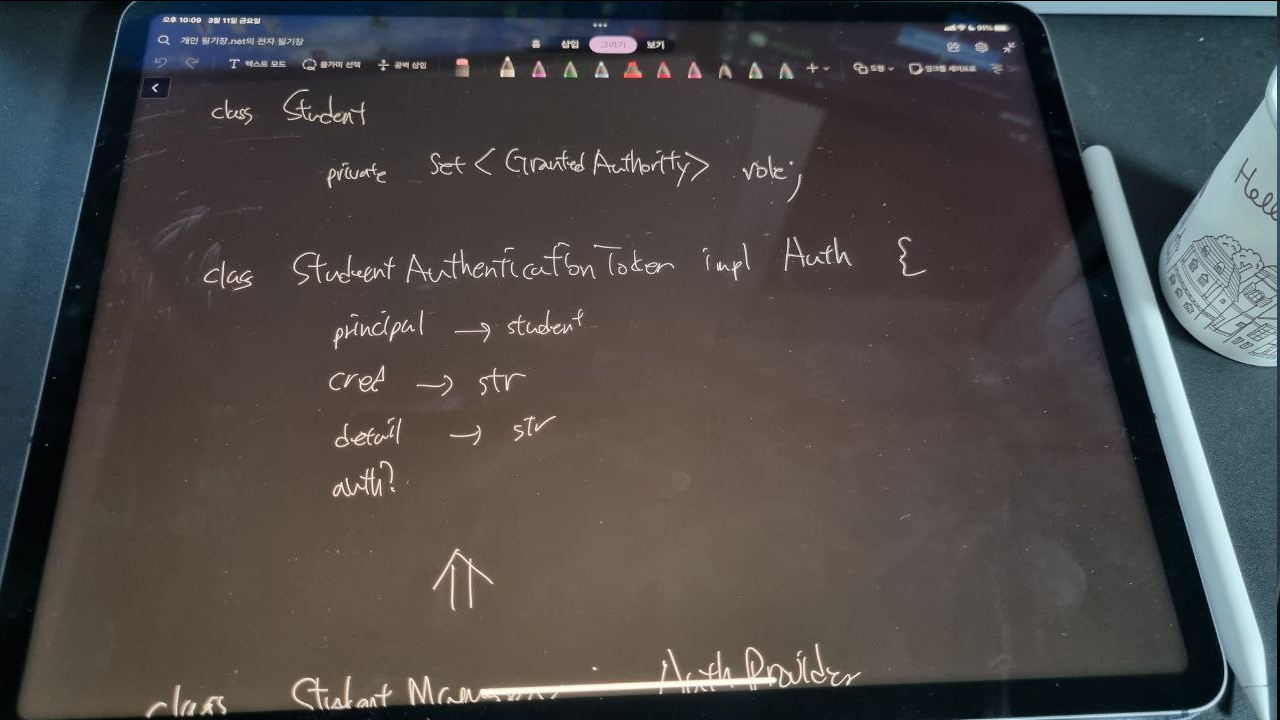 오후 10:09 3월 11일 금요일
91%
개인 필기장.net의 전자 필기장
홈 삽입 그리기 보기
텍스트 모드 올가미 선택 공백 삽입 도형 잉크를 셰이프로
class Student
private Set<GrantedAuthority> role;
class StudentAuthenticationToken impl Auth {
principal → student
cred → str
detail → str
auth?
class Student AuthProvider
Hello